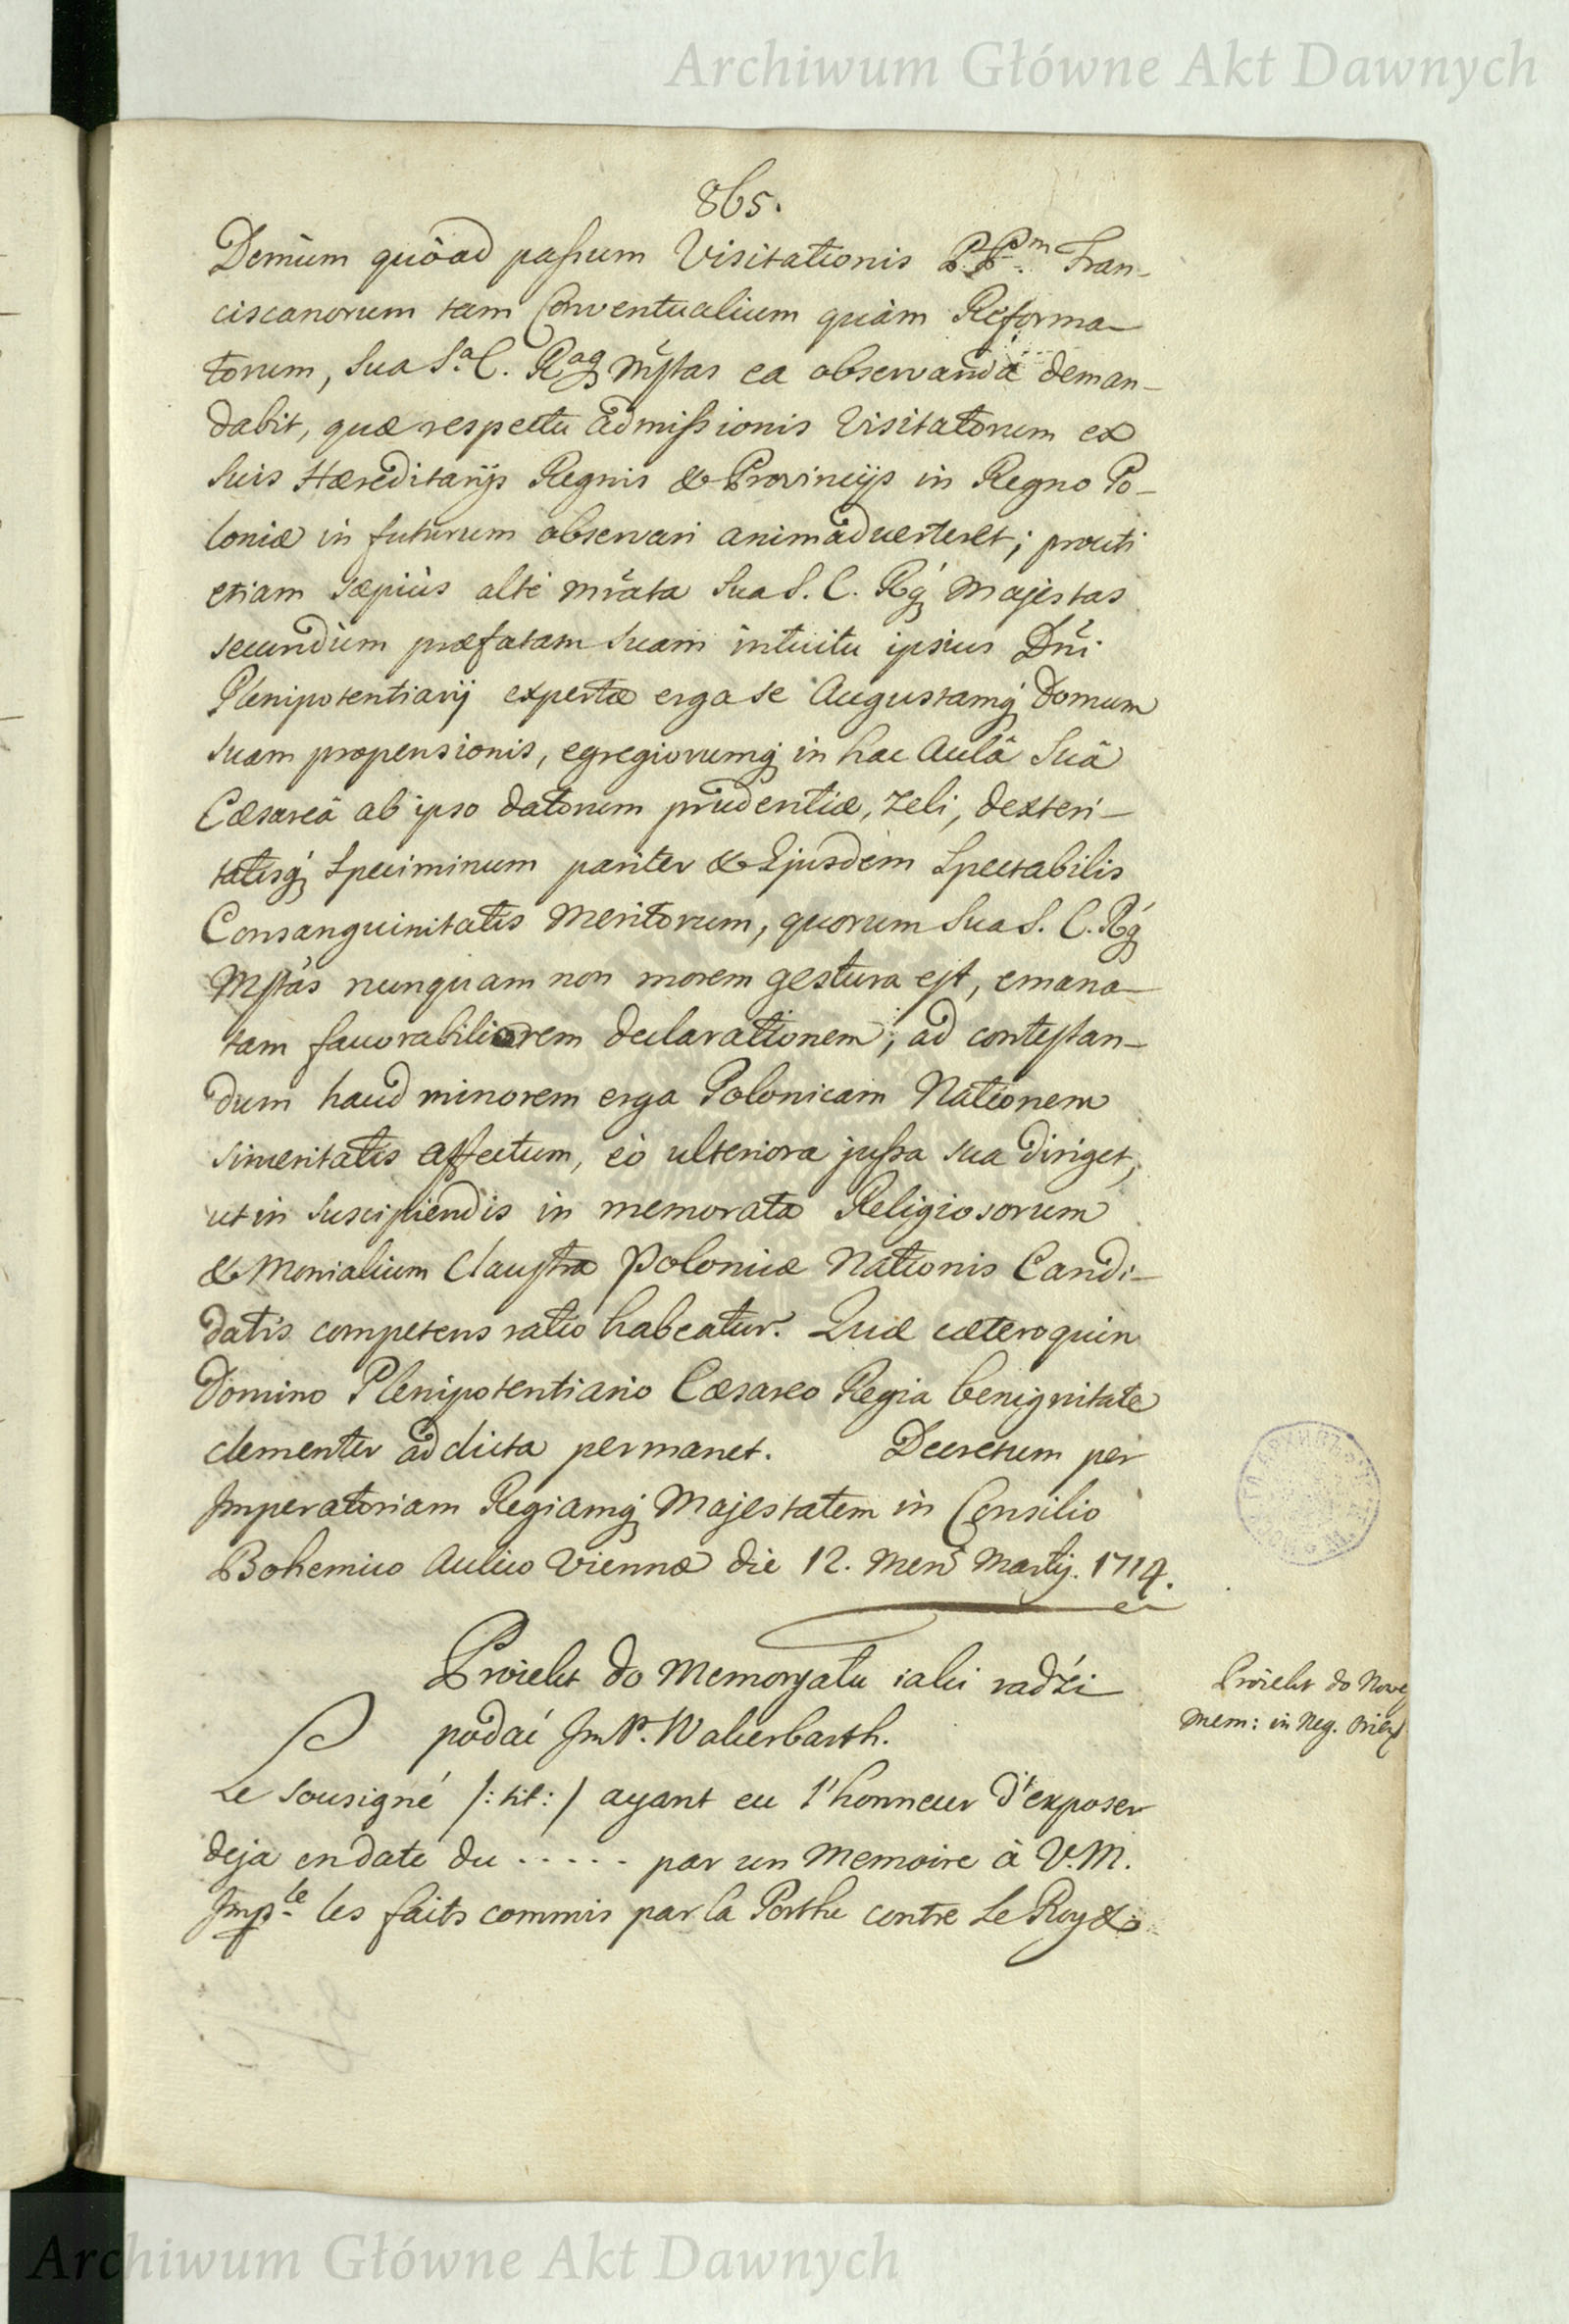 Archiwum Główne Akt Dawnych
865.
Demùm quòad passum Visitationis P.P.m Fran-
ciscanorum tam Conventualium quàm Reforma-
torum, Sua S.a C. Rag Mstas ea observanda deman-
dabit, quæ respectu admissionis Visitatorum ex
Suis Hæreditarijs Regnis & Provincijs in Regno Po-
loniæ in futurum observari animadverteret; prouti
etiam sæpiùs altè mrata Sua S. C. Rq Majestas
secundùm præfatam Suam intuitu ipsius Dni
Plenipotentiarij expertæ erga se Augustamq Domum
Suam propensionis, egregiorumq in hac Aulâ Suâ
Cæsareâ ab ipso datorum prudentiæ, Zeli, dexteri-
tatisq Speciminum pariter & Ejusdem Spectabilis
Consanguinitatis Meritorum, quorum Sua S. C. Rq
Mstas nunquam non morem gestura est, emana-
tam favorabiliorem declarationem; ad contestan-
dum haud minorem erga Polonicam Nationem
sinceritatis affectum, eò ulteriora jussa sua diriget,
ut in Suscipiendis in memorata Religiosorum
& Monialium Claustra Polonicæ Nationis Candi-
datis competens ratio habeatur. Quæ cæteroquin
Domino Plenipotentiario Cæsareo Regia benignitate
clementer addicta permanet. Decretum per
Imperatoriam Regiamq Majestatem in Consilio
Bohemico Aulico Viennæ die 12. Mens Martij. 1714.
Proiekt do Memoryału iaki radźi
podać Im P. Wakierbarth.
Proiekt do Nowe
Mem: in Neg. Orien
Le Sousigné /: tit: / ayant eu l'honneur d'exposer
deja en date du ..... par un Memoire à V.M.
Imp.le les faits commis par la Porthe contre Le Roy &
Archiwum Główne Akt Dawnych